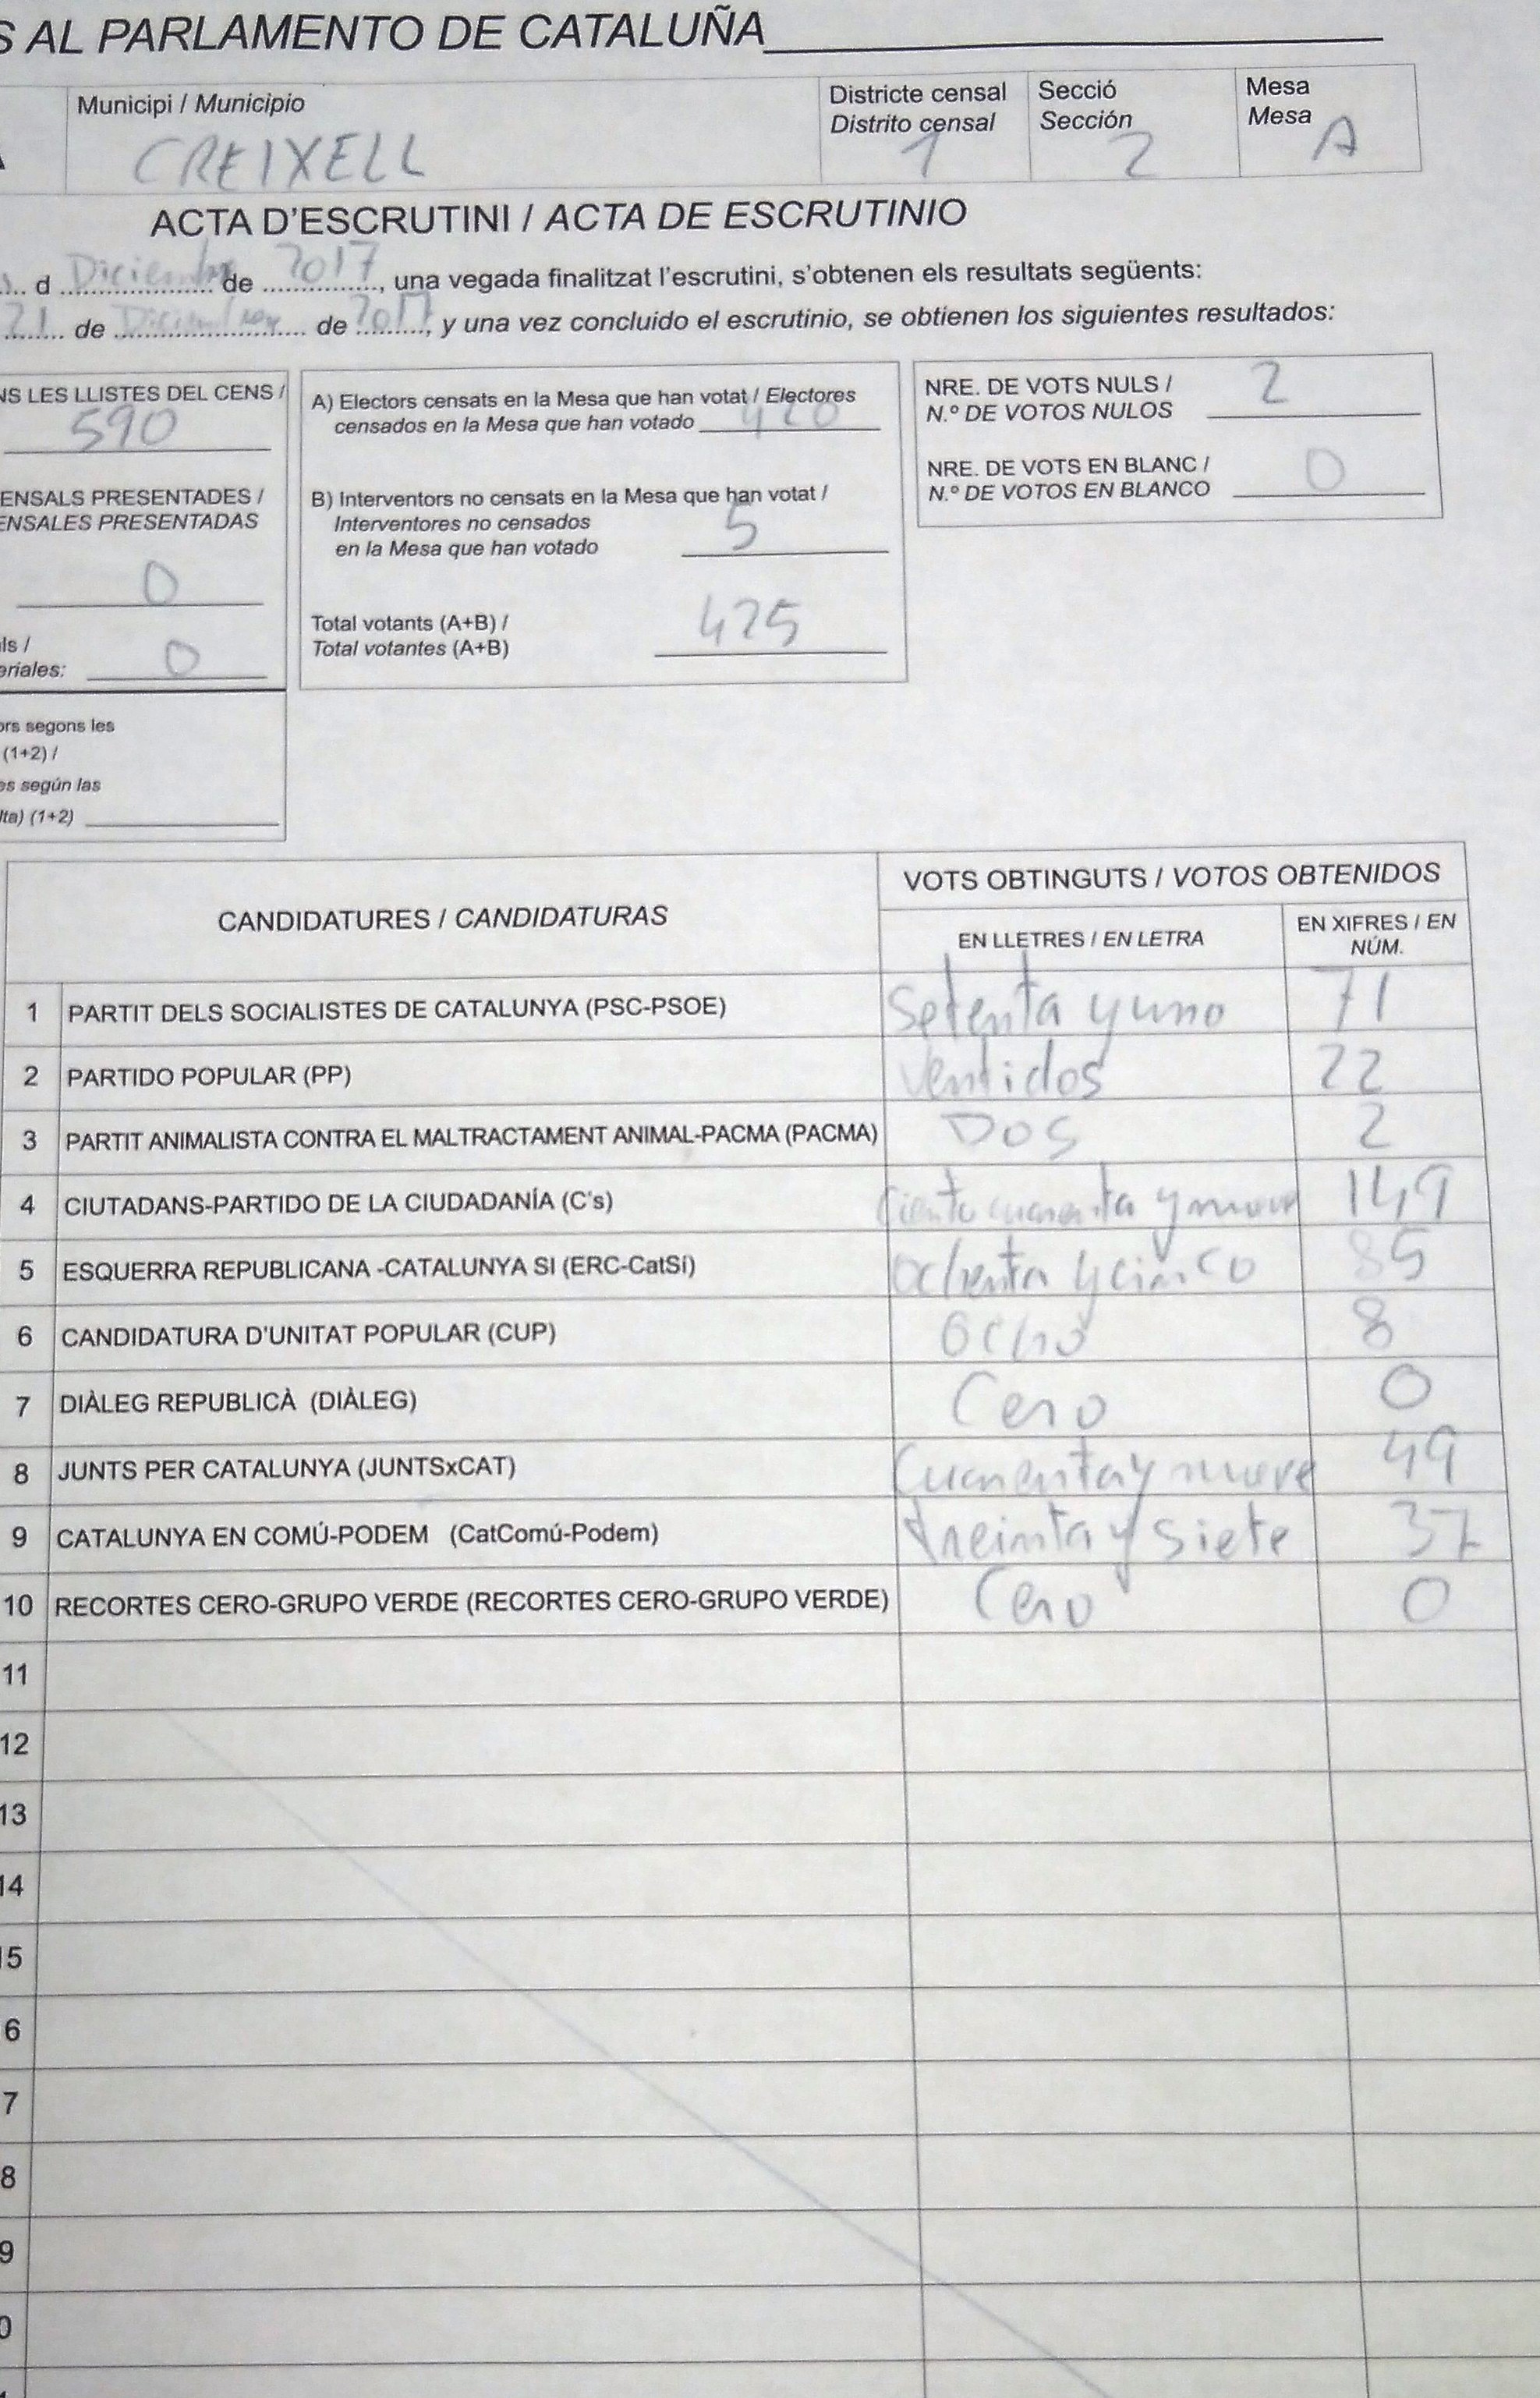 S AL PARLAMENTO DE CATALUÑA
Municipi / Municipio
CREIXELL
Districte censal
Distrito censal
1
Secció
Sección
2
Mesa
Mesa
A
ACTA D'ESCRUTINI / ACTA DE ESCRUTINIO
d Diciembre de 2017, una vegada finalitzat l'escrutini, s'obtenen els resultats següents:
21 de Diciembre de 2017, y una vez concluido el escrutinio, se obtienen los siguientes resultados:
NS LES LLISTES DEL CENS /
590
ENSALS PRESENTADES /
ENSALES PRESENTADAS
0
ls /
eriales: 0
ors segons les
(1+2) /
es según las
lta) (1+2)
A) Electors censats en la Mesa que han votat / Electores
censados en la Mesa que han votado 420
B) Interventors no censats en la Mesa que han votat /
Interventores no censados
en la Mesa que han votado 5
Total votants (A+B) /
Total votantes (A+B) 425
NRE. DE VOTS NULS /
N.º DE VOTOS NULOS 2
NRE. DE VOTS EN BLANC /
N.º DE VOTOS EN BLANCO 0
CANDIDATURES / CANDIDATURAS
VOTS OBTINGUTS / VOTOS OBTENIDOS
EN LLETRES / EN LETRA
EN XIFRES / EN
NÚM.
1 PARTIT DELS SOCIALISTES DE CATALUNYA (PSC-PSOE) Setenta y uno 71
2 PARTIDO POPULAR (PP) Ventidos 22
3 PARTIT ANIMALISTA CONTRA EL MALTRACTAMENT ANIMAL-PACMA (PACMA) DOS 2
4 CIUTADANS-PARTIDO DE LA CIUDADANÍA (C's) Ciento cuarenta y nueve 149
5 ESQUERRA REPUBLICANA -CATALUNYA SI (ERC-CatSí) Ochenta y cinco 85
6 CANDIDATURA D'UNITAT POPULAR (CUP) Ocho 8
7 DIÀLEG REPUBLICÀ (DIÀLEG) Cero 0
8 JUNTS PER CATALUNYA (JUNTSxCAT) Cuarenta y nueve 49
9 CATALUNYA EN COMÚ-PODEM (CatComú-Podem) treinta y siete 37
10 RECORTES CERO-GRUPO VERDE (RECORTES CERO-GRUPO VERDE) Cero 0
11
12
13
14
15
6
7
8
9
0